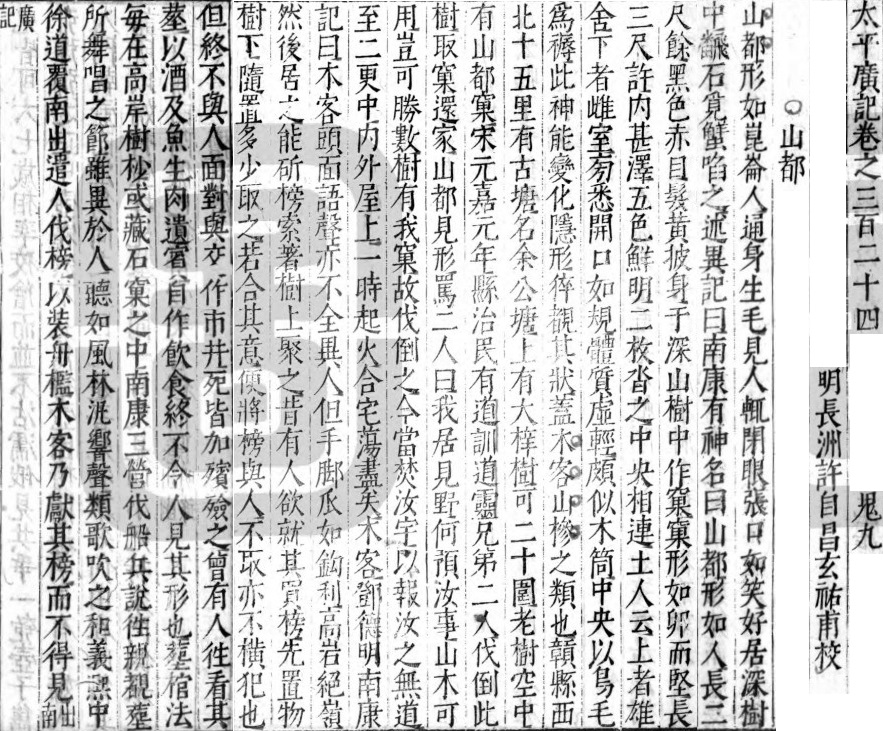 太平廣記卷之三百二十四 鬼九
明長洲許自昌玄祐甫校
○山都
山都形如崑崙人通身生毛見人輒閉眼張口如笑好居深樹
中飜石覓蟹啗之述異記曰南康有神名曰山都形如人長二
尺餘黑色赤目髮黃披身于深山樹中作窠窠形如卵而堅長
三尺許内甚澤五色鮮明二枚沓之中央相連土人云上者雄
舍下者雌室旁悉開口如規體質虛輕頗似木筒中央以鳥毛
爲褥此神能變化隱形猝覩其狀蓋木客山㺑之類也贛縣西
北十五里有古塘名余公塘上有大梓樹可二十圍老樹空中
有山都窠宋元嘉元年縣治民有道訓道靈兄第二人伐倒此
樹取窠還家山都見形罵二人曰我居見野何預汝事山木可
用豈可勝數樹有我窠故伐倒之今當焚汝宇以報汝之無道
至二更中内外屋上一時起火合宅蕩盡矣木客鄧德明南康
記曰木客頭面語聲亦不全異人但手脚爪如鈎利高岩絕嶺
然後居之能斫榜索著樹上聚之昔有人欲就其買榜先置物
樹下隨置多少取之若合其意便將榜與人不取亦不橫犯也
但終不與人面對與交作市井死皆加殯殮之曾有人徃看其
塟以酒及魚生肉遺賔自作飲食終不令人見其形也塟棺法
每在高岸樹杪或藏石窠之中南康三營伐船兵說徃親覩塟
所舞唱之節雖異於人聽如風林汎響聲類歌吹之和義熙中
徐道覆南出遣人伐榜以装舟檻木客乃獻其榜而不得見出南
廣記